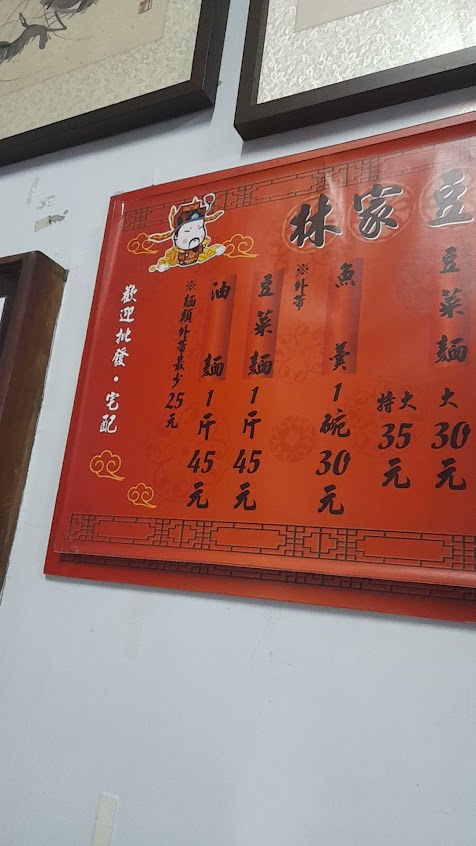 林家豆
豆菜麵
大30元
特大35元
魚羹1碗30元
※外帶
豆菜麵1斤45元
油麵1斤45元
※麵類外帶最少25元
歡迎批發・宅配